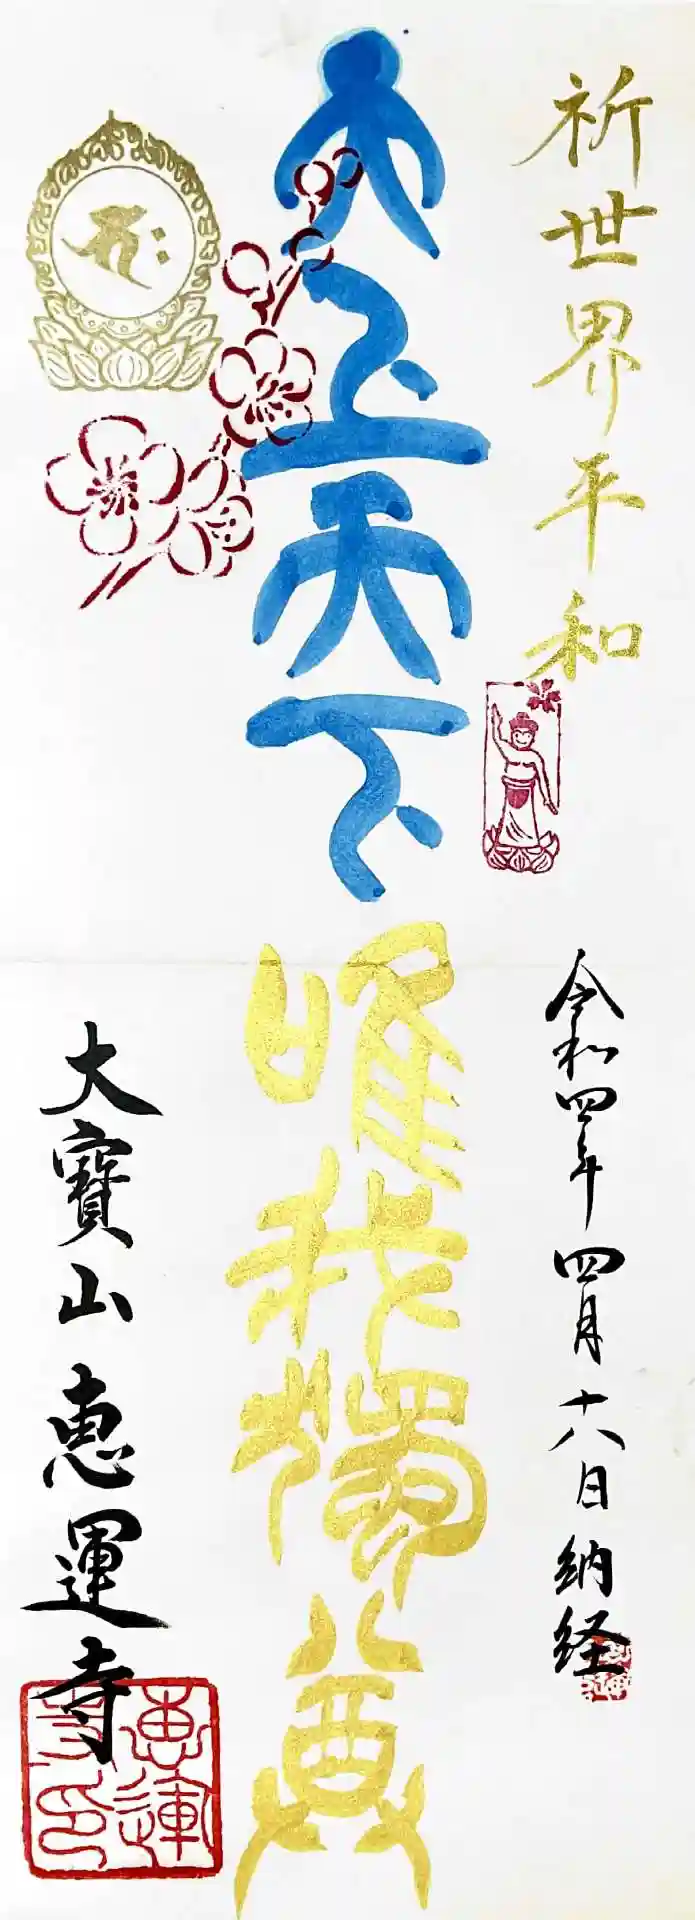 祈世界平和
令和四年四月十八日納経
天上天下
唯我獨尊
大寶山 恵運寺
恵運
寺印